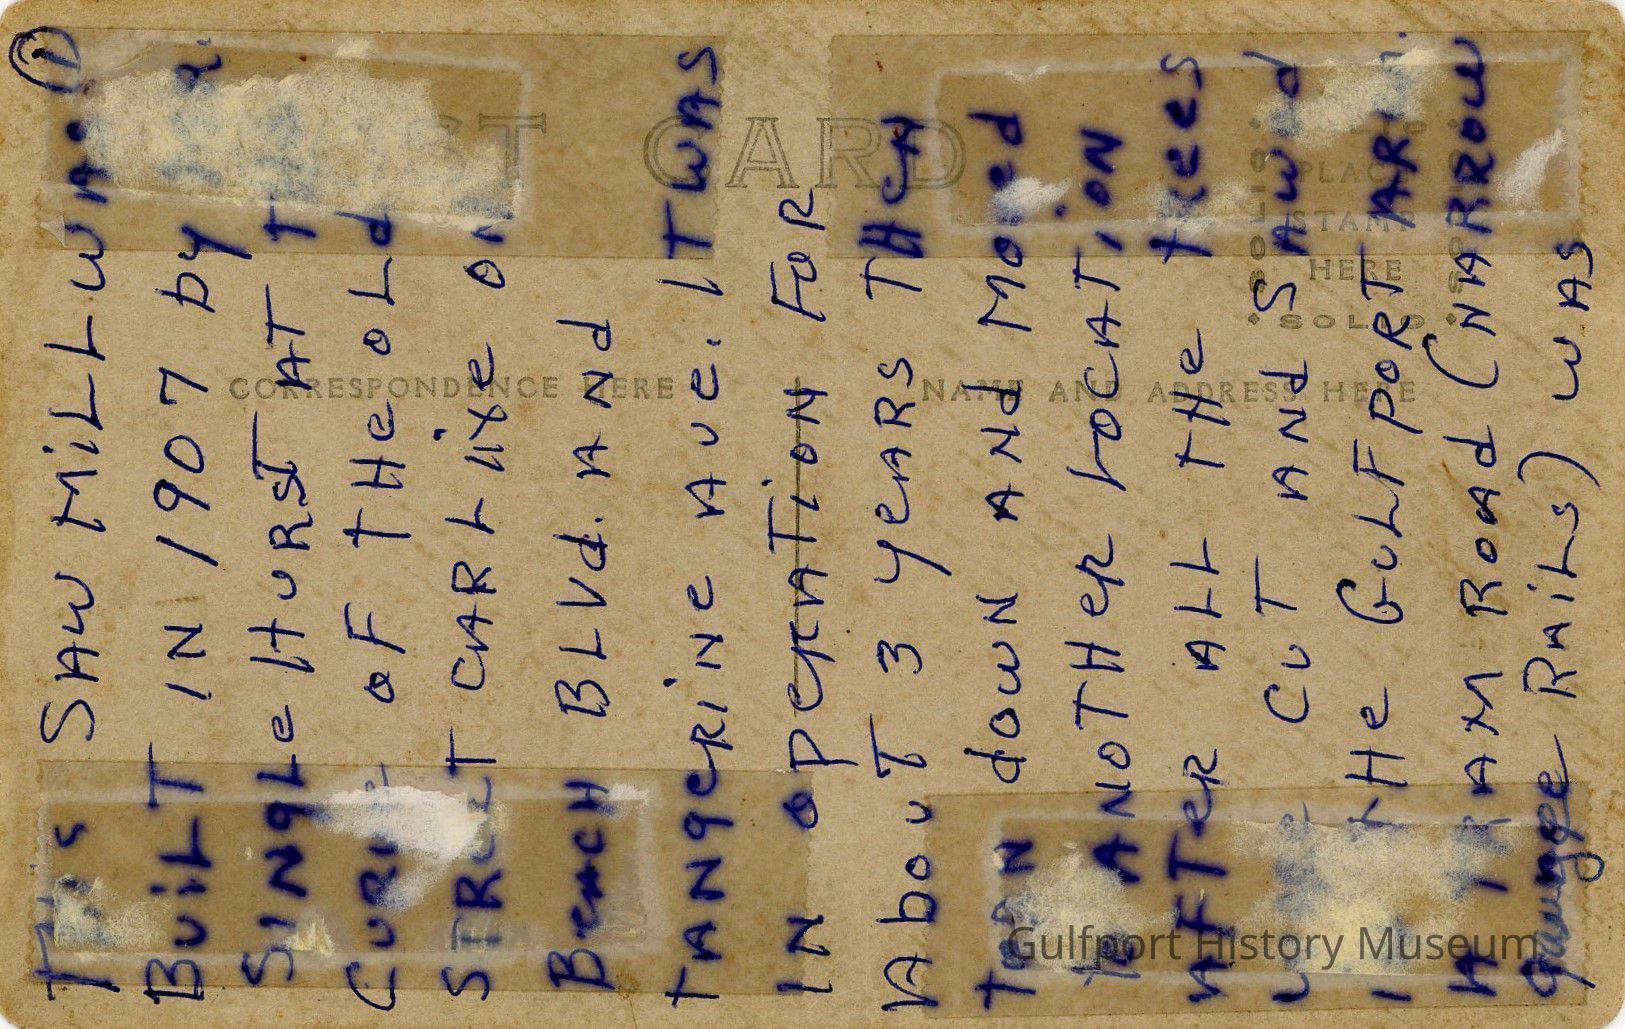 ①
This SAW MiLL WAS
BUiLT IN 1907 by
SINgLeHURST AT T
CURVE OF THE OLD
STREET CAR LiNe ON
BeACH BLVd. ANd
TANgeRiNe AVe. IT WAS
IN OPERATiON FOR
About 3 yeARS THeN
ToRN dowN ANd Moved
To ANOTHeR LOCATiON
AFTeR ALL THe tRees
CUT ANd SAWed
THe GULFPORT
RoAd (NARROW
gaunge RAiLs) WAS
POST CARD
CORRESPONDENCE HERE
NAME AND ADDRESS HERE
PLACE
STAMP
HERE
SOLIO
Gulfport History Museum